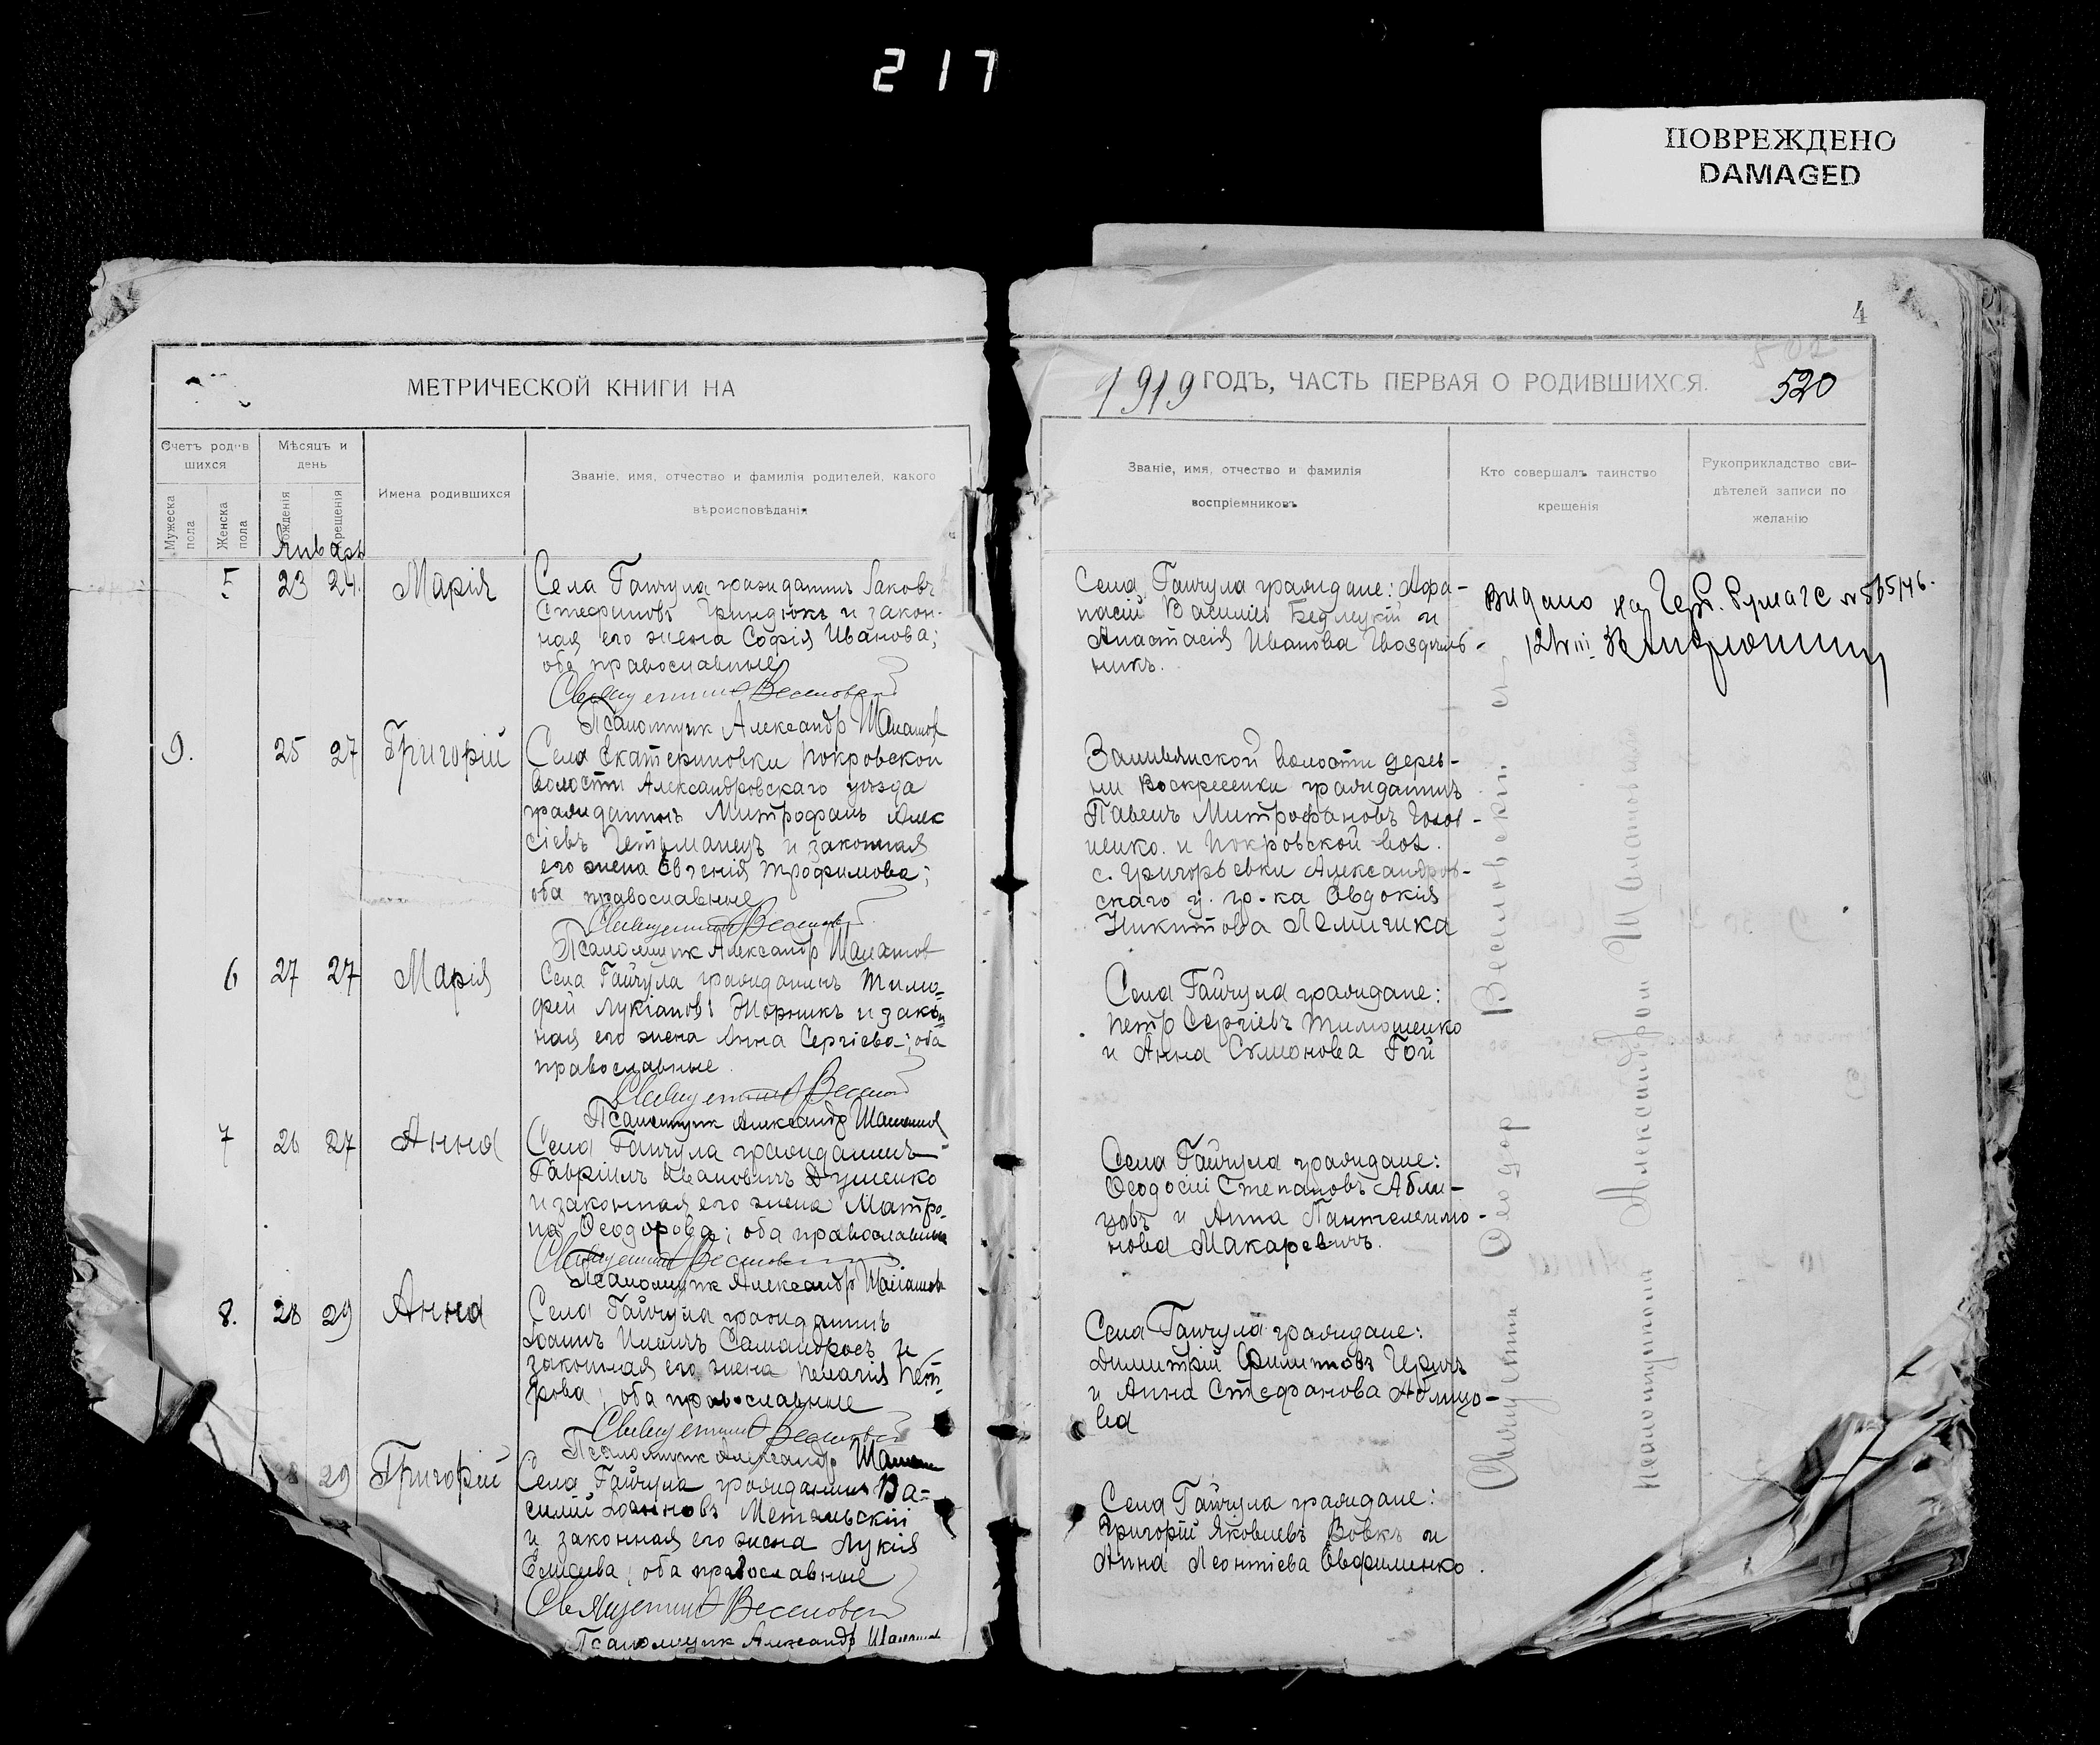 217
ПОВРЕЖДЕНО
DAMAGED
4
МЕТРИЧЕСКОЙ КНИГИ НА
1919 ГОДЪ, ЧАСТЬ ПЕРВАЯ О РОДИВШИХСЯ.
520
Счетъ родив
шихся
Мѣсяцъ и
день
Имена родившихся
Званіе, имя, отчество и фамилія родителей, какого
вѣроисповѣданія
Мужеска
пола
Женска
пола
рожденія
крещенія
Январь
Званіе, имя, отчество и фамилія
воспріемниковъ
Кто совершалъ таинство
крещенія
Рукоприкладство сви-
дѣтелей записи по
желанію
5 23 24. Марія
Села Гайчула гражданинъ Іаковъ
Стефановъ Гриндюкъ и закон-
ная его жена Софія Иванова;
оба православные
Священникъ Веселовскій
Псаломщик Александр Шаматов
Села Гайчула граждане: Афа-
насій Василіев Бедлецкій и
Анастасія Иванова Гвоздиль-
никъ.
9. 25 27 Григорій
Села Екатериновки Покровской
волости Александровскаго уѣзда
гражданинъ Митрофанъ Алек
сіевъ Гетьманецъ и законная
его жена Евгенія Трофимова;
оба православные
Священникъ Веселовскій
Псаломщик Александр Шаматов
волости дерев-
ни Воскресенки гражданинъ
Павелъ Митрофановъ Голов-
ченко. и Покровской вол.
с. Григорьевки Александров-
скаго у. гр-ка Евдокія
Никитова
6 27 27 Марія
Села Гайчула гражданинъ Тимо-
фей Лукіанов Жорникъ и закон
ная его жена Анна Сергіева; оба
православные.
Священникъ Веселовскій
Псаломщик Александр Шаматов
Села Гайчула граждане:
Петр Сергіевъ Тимошенко
и Анна Симонова Гой
7 26 27 Анна
Села Гайчула гражданинъ
Гавріилъ Ивановичъ Душенко
и законная его жена Матро-
на Ѳеодорова; оба православные
Священникъ Веселовскій
Псаломщик Александр Шаматов
Села Гайчула граждане:
Ѳеодосій Степановъ Абли-
зовъ и Анна Пантелеимо-
нова Макаревичъ.
8. 28 29 Анна
Села Гайчула гражданинъ
Іоаннъ Ильичъ и
законная его жена Пелагія Пет-
рова; оба православные
Священникъ Веселовскій
Псаломщик Александр
Села Гайчула граждане:
Димитрій Филиповъ
и Анна Стефанова
ва
29 Григорій
Села Гайчула гражданинъ Ва-
силій Іоанновъ Метельскій
и законная его жена Лукія
Елисеева; оба православные
Священникъ Веселовскій
Псаломщик Александр
Села Гайчула граждане:
Григорій Яковлевъ Вовкъ и
Анна Леонтіева Евфименко.
Священник Ѳеодор Веселовскій с
псаломщиком Александром Шаматовым